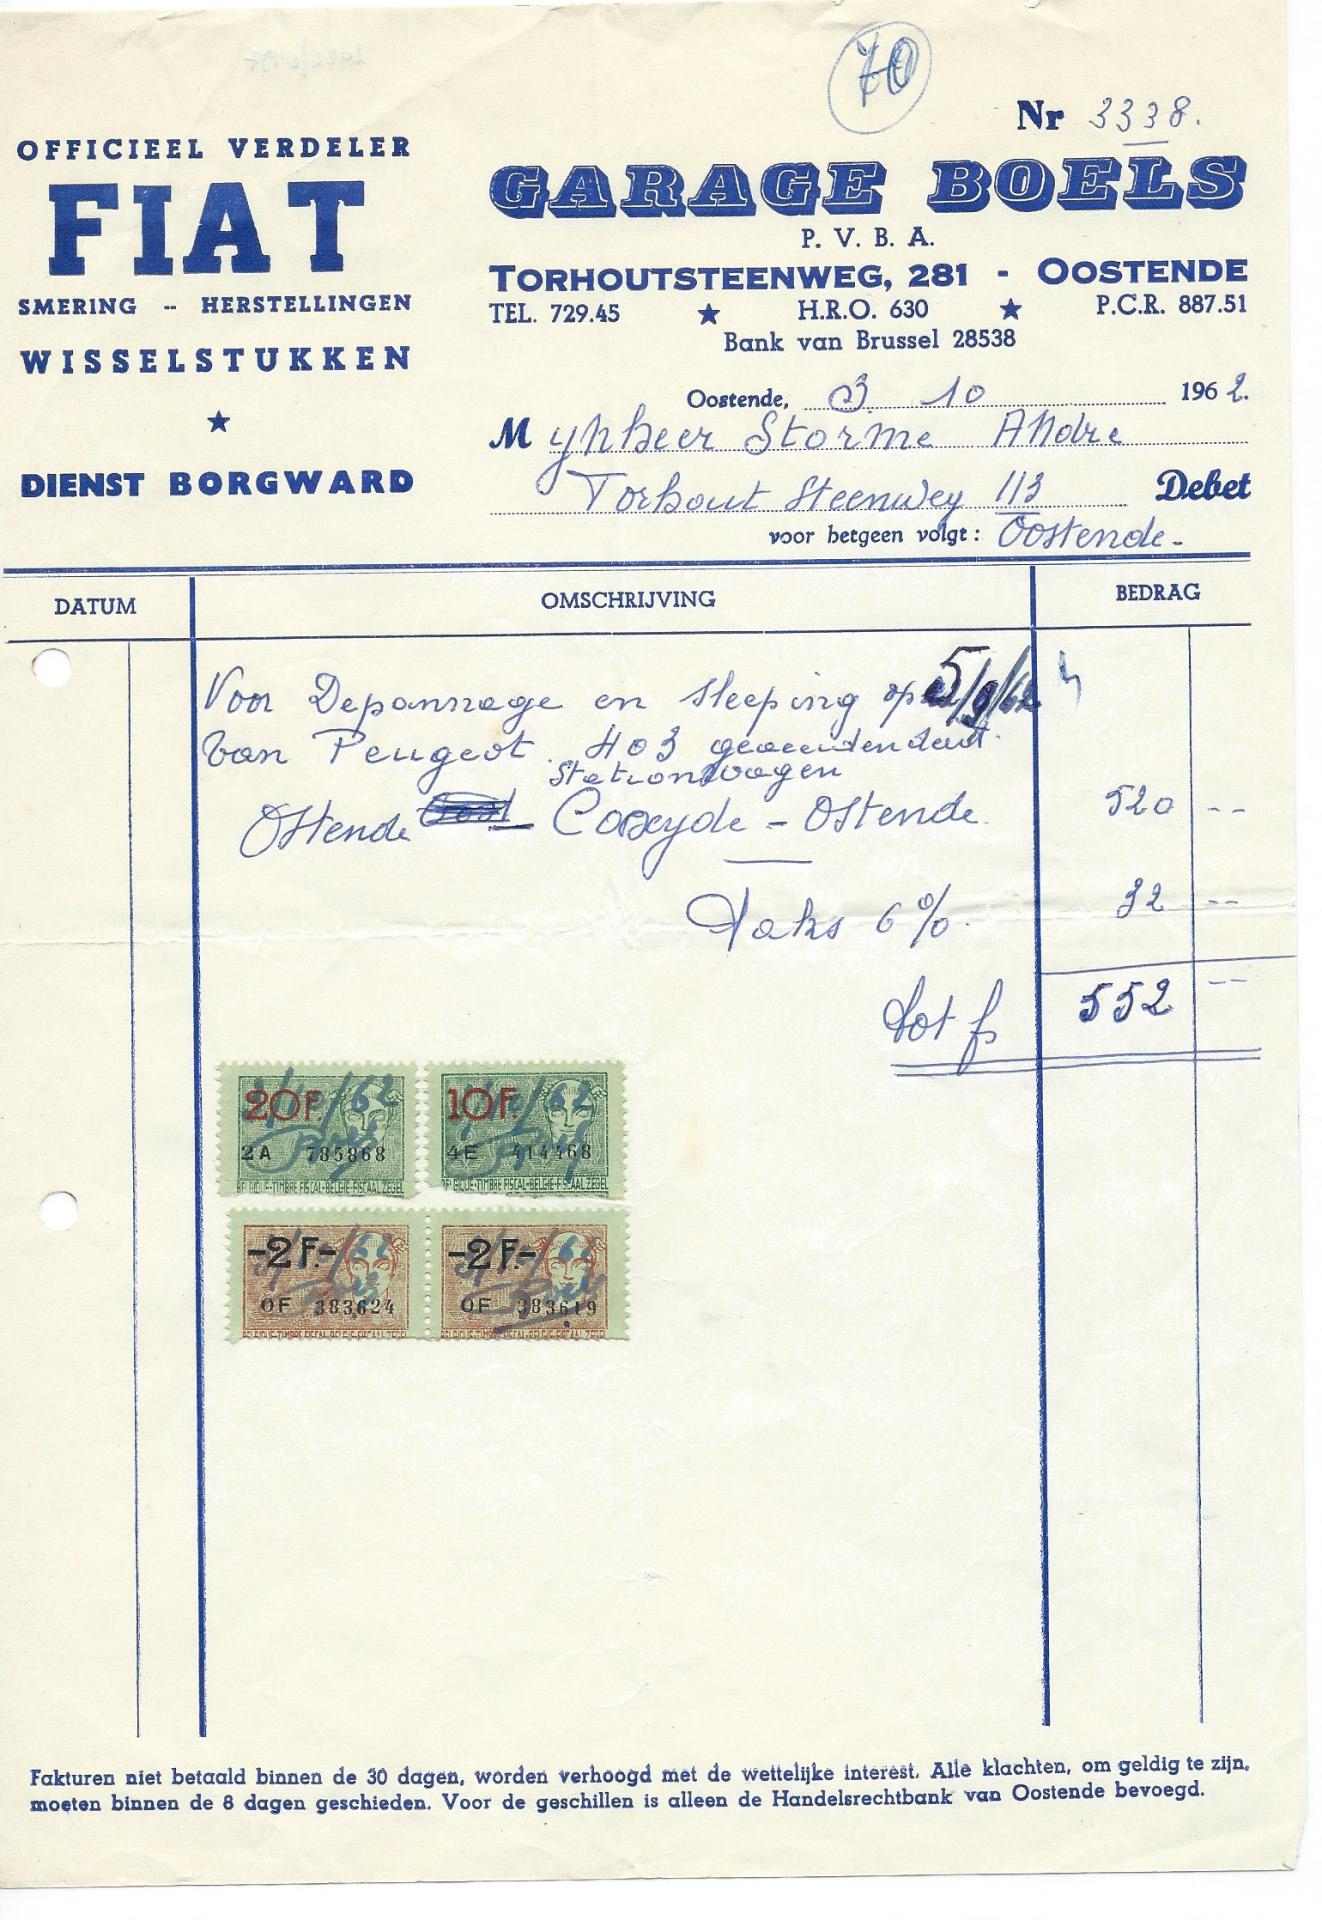 70
Nr 3338.
OFFICIEEL VERDELER
FIAT
SMERING -- HERSTELLINGEN
WISSELSTUKKEN
DIENST BORGWARD
GARAGE BOELS
P. V. B. A.
TORHOUTSTEENWEG, 281 - OOSTENDE
TEL. 729.45 ★ H.R.O. 630 ★ P.C.R. 887.51
Bank van Brussel 28538
Oostende, 3. 10 1962.
Mynheer Storme Andre
Torhout Steenweg 113 Debet
voor hetgeen volgt: Oostende-
DATUM OMSCHRIJVING BEDRAG
Voor Depannage en sleeping op 5/9/62
Van Peugeot 403
Stationwagen
Ostende Coxyde - Ostende. 520 --
Taks 6%. 32 --
Tot f 552 --
20F. 10F.
2A 785868 4E 414468
BELGIQUE-TIMBRE FISCAL-BELGIE-FISCAAL ZEGEL BELGIQUE-TIMBRE FISCAL-BELGIE-FISCAAL ZEGEL
-2F.- -2F.-
OF 383624 OF 383619
BELGIQUE-TIMBRE FISCAL-BELGIE-FISCAAL ZEGEL BELGIQUE-TIMBRE FISCAL-BELGIE-FISCAAL ZEGEL
Fakturen niet betaald binnen de 30 dagen, worden verhoogd met de wettelijke interest. Alle klachten, om geldig te zijn,
moeten binnen de 8 dagen geschieden. Voor de geschillen is alleen de Handelsrechtbank van Oostende bevoegd.